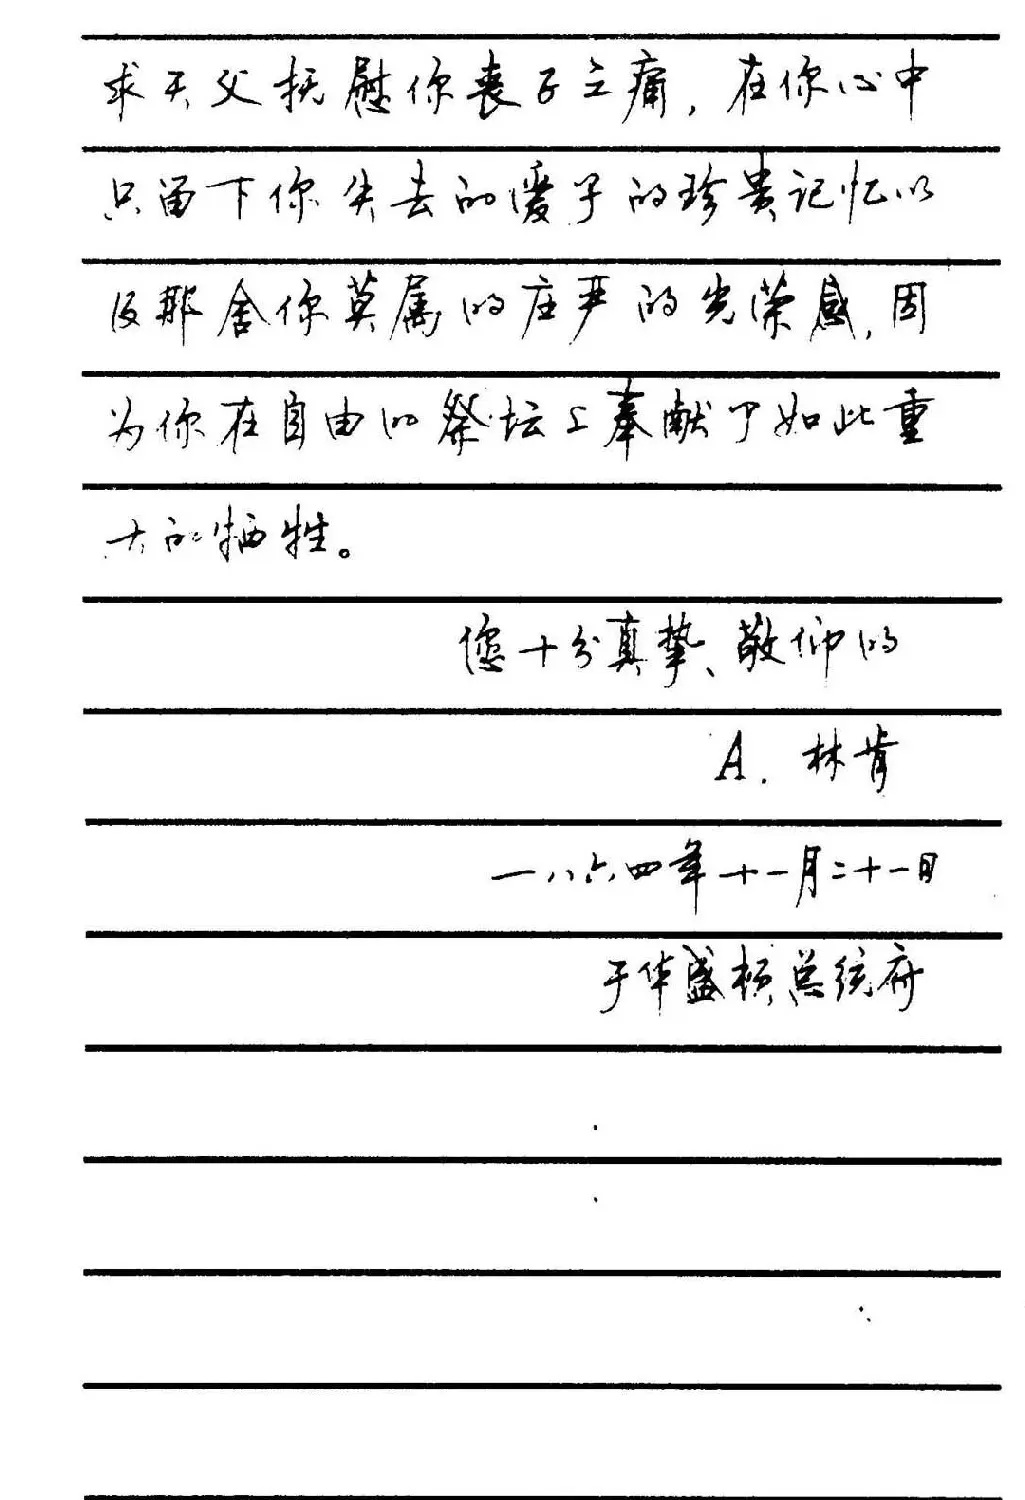 求天父抚慰你丧子之痛，在你心中
只留下你失去的爱子的珍贵记忆以
及那舍你莫属的庄严的光荣感，因
为你在自由的祭坛上奉献了如此重
大的牺牲。
您十分真挚、敬仰的
A. 林肯
一八六四年十一月二十一日
于华盛顿总统府